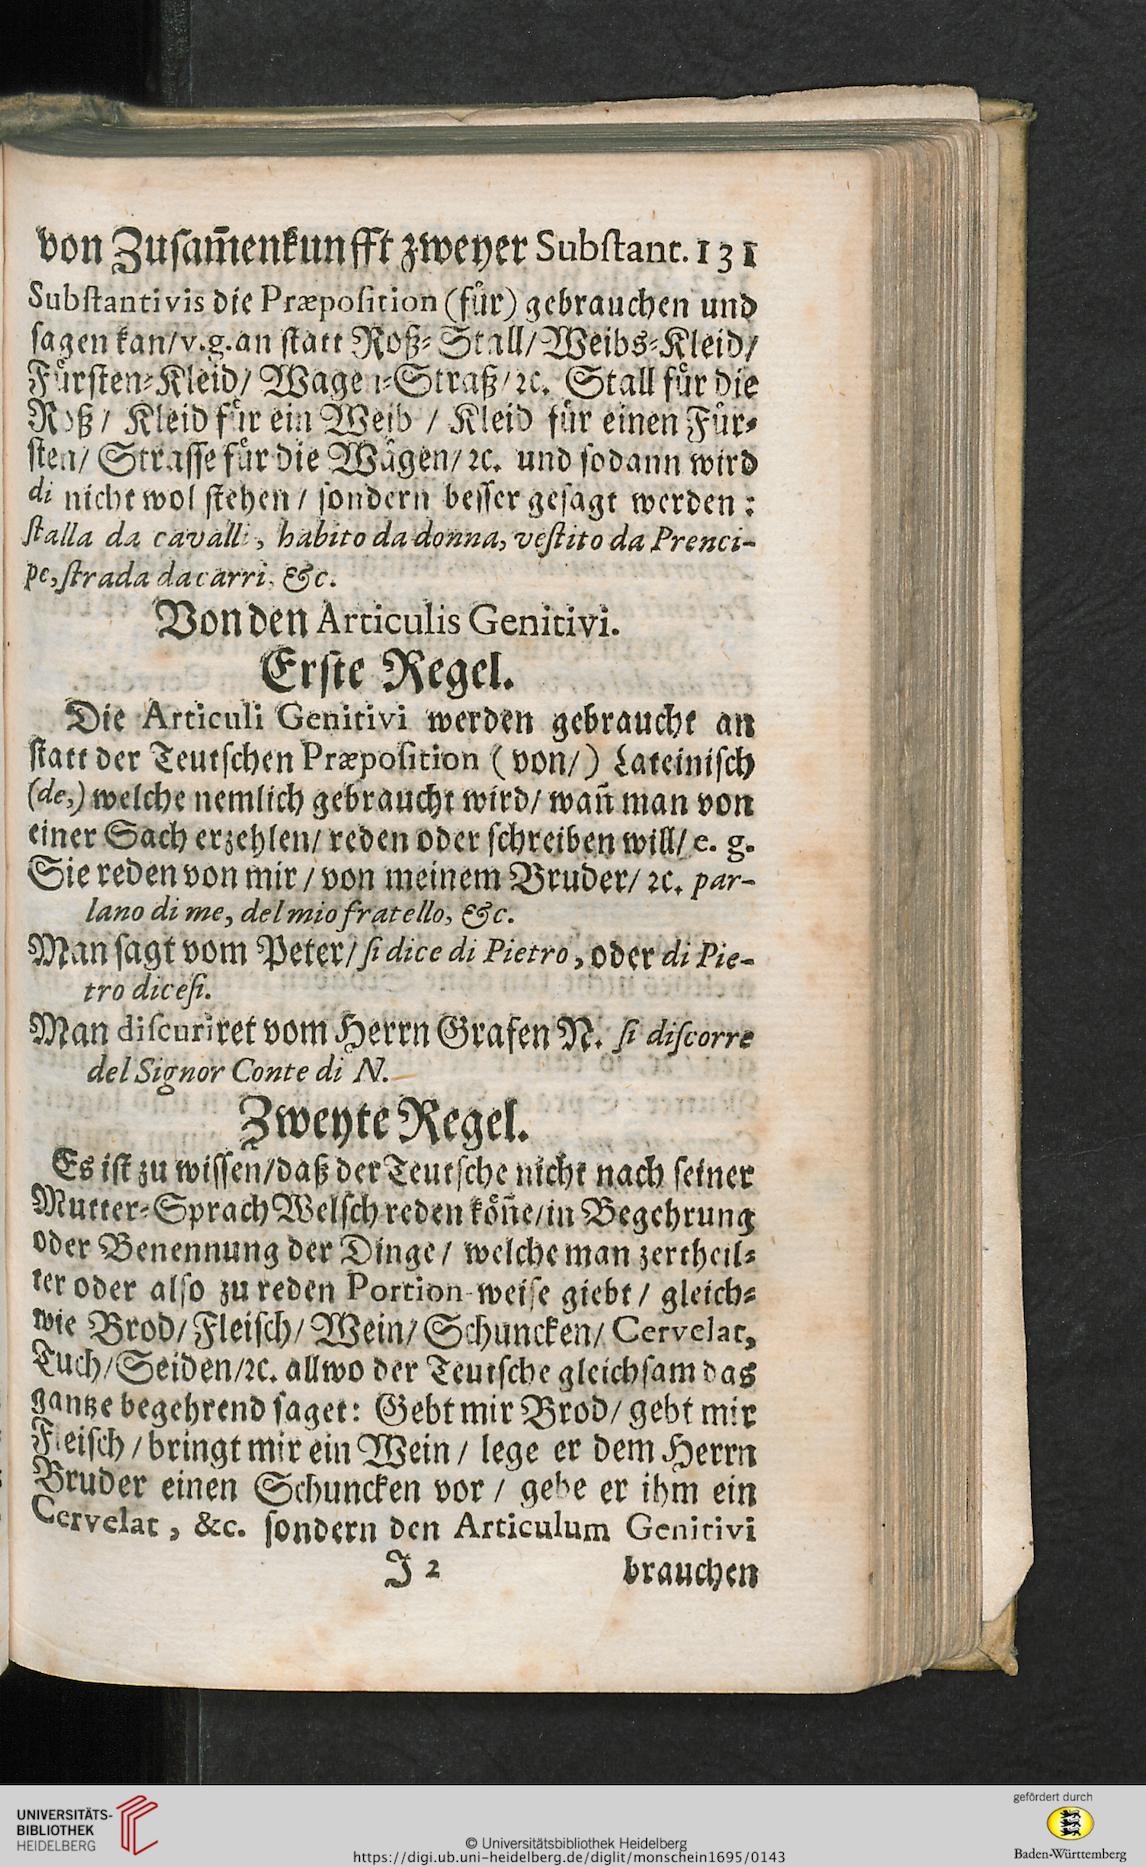 von Zusam̃enkunfft zweyer Substant. 131
Substantivis die Præposition (fůr) gebrauchen und
sagen kan/ v.g. an statt Roß-Stall/ Weibs-Kleid/
Fůrsten-Kleid/ Wagen-Straß/ ꝛc. Stall fůr die
Roß/ Kleid fůr ein Weib/ Kleid fůr einen Fůr-
sten/ Strasse fůr die Wågen/ ꝛc. und sodann wird
di nicht wol stehen/ sondern besser gesagt werden:
stalla da cavalli, habito da donna, vestito da Prenci-
pe, strada da carri, &c.
Von den Articulis Genitivi.
Erste Regel.
Die Articuli Genitivi werden gebraucht an
statt der Teutschen Præposition (von/) Lateinisch
(de,) welche nemlich gebraucht wird/ wañ man von
einer Sach erzehlen/ reden oder schreiben will/ e. g.
Sie reden von mir/ von meinem Bruder/ ꝛc. par-
lano di me, del mio fratello, &c.
Man sagt vom Peter/ si dice di Pietro, oder di Pie-
tro dicesi.
Man discuriret vom Herrn Grafen N. si discorre
del Signor Conte di N.
Zweyte Regel.
Es ist zu wissen/ daß der Teutsche nicht nach seiner
Mutter-Sprach Welsch reden kőñe/ in Begehrung
oder Benennung der Dinge/ welche man zertheil-
ter oder also zu reden Portion-weise giebt/ gleich-
wie Brod/ Fleisch/ Wein/ Schuncken/ Cervelat,
Tuch/ Seiden/ ꝛc. allwo der Teutsche gleichsam das
gantze begehrend saget: Gebt mir Brod/ gebt mir
Fleisch/ bringt mir ein Wein/ lege er dem Herrn
Bruder einen Schuncken vor/ gebe er ihm ein
Cervelat, &c. sondern den Articulum Genitivi
J 2 brauchen
UNIVERSITÄTS-
BIBLIOTHEK
HEIDELBERG
© Universitätsbibliothek Heidelberg
https://digi.ub.uni-heidelberg.de/diglit/monschein1695/0143
gefördert durch
Baden-Württemberg